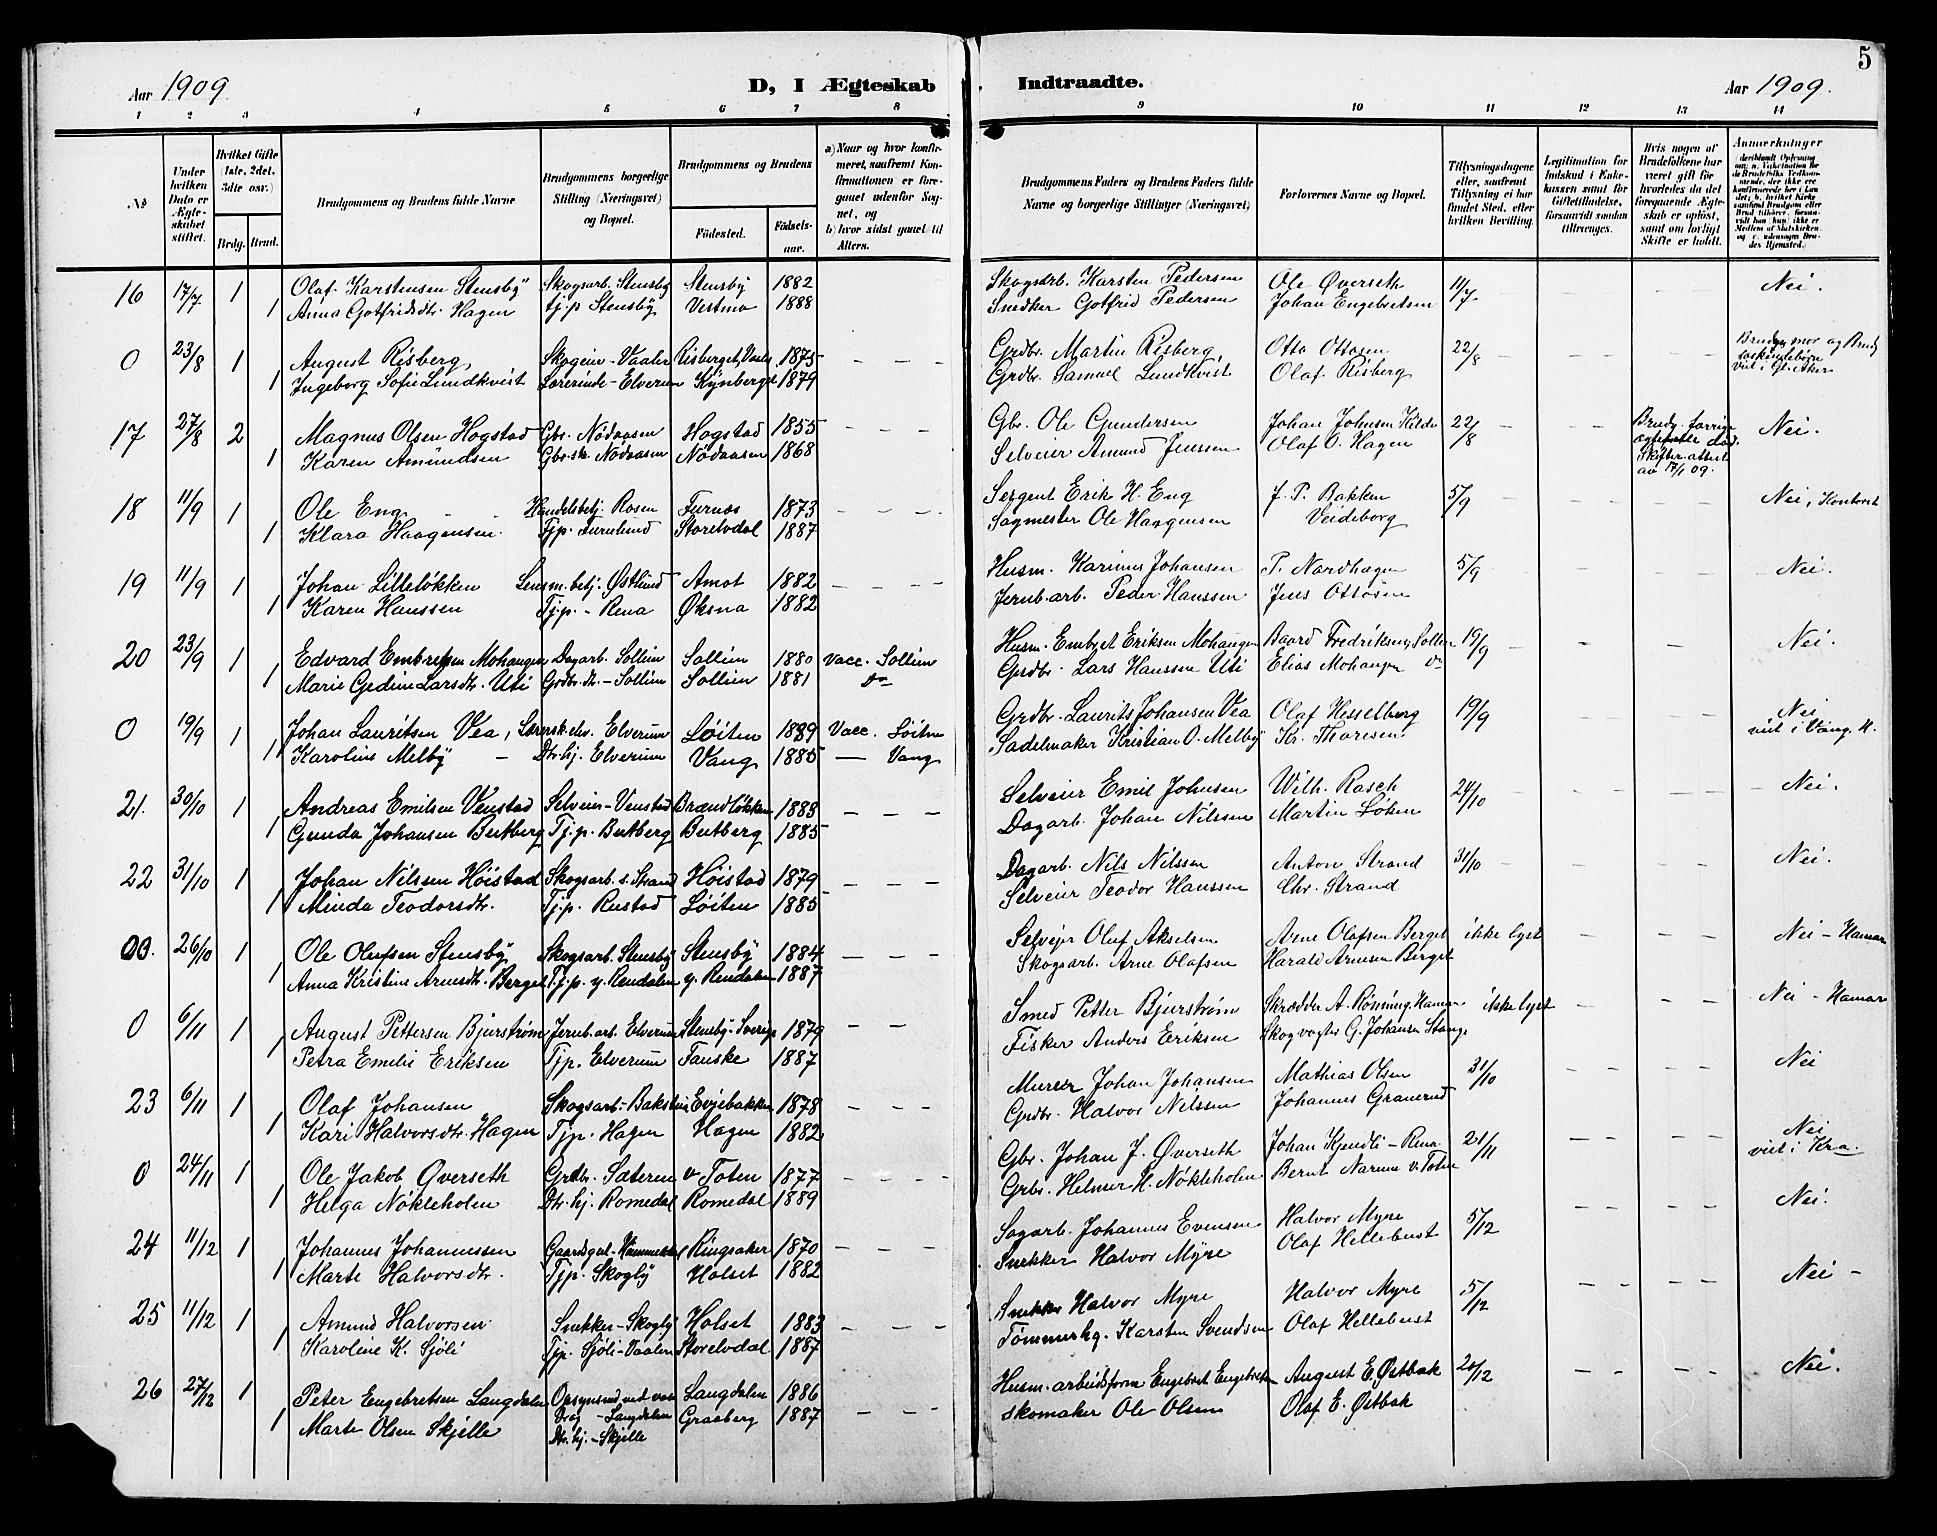 5
Aar 1909
D, I Ægteskab Indtraadte.
Aar 1909.
1 2 3 4 5 6 7 8 9 10 11 12 13 14
No
Under hvilken Dato er Ægteskabet stiftet.
Hvilket Gifte (1ste, 2det, 3die osv.)
Brdg. Brud.
Brudgommens og Brudens fulde Navne
Brudgommens borgerlige Stilling (Næringsvei) og Bopæl.
Brudgommens og Brudens
Fødested. Fødselsaar.
a) Naar og hvor konfirmeret, saafremt Konfirmationen er foregaaet udenfor Sognet, og
b) hvor sidst gaaet til Alters.
Brudgommens Faders og Brudens Faders fulde Navne og borgerlige Stillinger (Næringsvei)
Forlovernes Navne og Bopæl.
Tillysningsdagene eller, saafremt Tillysning ei har fundet Sted, efter hvilken Bevilling.
Legitimation for Indskud i Enkekassen samt for Giftetilladelse, forsaavidt saadan tiltrænges.
Hvis nogen af Brudefolkene har været gift før hvorledes da det foregaaende Ægteskab er opløst, samt om lovligt Skifte er holdt.
Anmerkninger
16 17/7 1 Olaf Karstensen Stensby Skogsarb. Stensby Stensby 1882 Skogsarb. Karsten Pedersen Ole Øverseth 11/7 Nei.
1 Anna Gotfridsdtr. Hagen tj.p Stensby Vestmo 1888 Snedker Gotfrid Pedersen Johan Engebretsen
0 23/8 1 August Risberg Skogeier - Vaaler Risberget, Vaaler 1875 Grdbr. Martin Risberg, Otto Ottosen 22/8 mor og Brud
1 Ingeborg Sofie Lundkvist Lærerinde - Elverum Kynberget 1879 Grdbr. Samuel Lundkvist Olaf Risberg søskendebørn
17 27/8 2 Magnus Olsen Hogstad Gbr. Nödaasen Hogstad 1855 Gbr. Ole Gundersen Johan Johnsen Kilde 22/8 Brudg. forrige ægtefælle død. Skifteattest av 17/1 09. Nei.
1 Karen Amundsen Nödaasen Nödaasen 1868 Selveier Amund Jenssen Olaf O. Hagen
18 11/9 1 Ole Eng Handelsbetj. Rosen Furnes 1873 Sergent Erik H. Eng J. P. Bakken 5/9 Nei, Kontoret
1 Klara Haagensen Tjp. Furulund Storelvdal 1887 Sagmester Ole Haagensen Veideborg
19 11/9 1 Johan Lilleløkken Lensm.betj. Østlund Amot 1882 Husm. Karinus Johansen P. Nordhagen 5/9 Nei.
1 Karen Hanssen Tjp. - Rena Øksna 1882 Jernb.arb. Peder Hanssen Jens Ottosen
20 23/9 1 Edvard Embretsen Mohangen Dagarb. Sollien Sollien 1880 Vacc. Sollien Husm. Embret Eriksen Mohangen Baard Fredriksen, Sollien 19/9 Nei.
1 Marie Gedine Larsdtr. Uti Grdbr. dtr. - Sollien Sollien 1881 Do Grdbr. Lars Hanssen Uti Elias Mohangen Do
0 19/9 1 Johan Lauritsen Vea, Elverum Løiten 1889 Vacc. Løiten Grdbr. Laurits Johansen Vea Olaf Hesselberg 19/9 Nei
1 Karoline Melby - Dtr. hj. Elverum Vang 1885 - Vang Sadelmaker Kristian O. Melby Kr. Thoresen viet i Vang, H.
21. 30/10 1 Andreas Emilsen Venstad Selveier - Venstad Brændløkken 1888 Selveier Emil Johnsen Wilh. Rasch 24/10 Nei.
1 Gunda Johansen Butberg Tj.p. Butberg Butberg 1885 Dagarb. Johan Nilssen Martin Løken
22 31/10 1 Johan Nilssen Höistad Skogsarb. s. Strand Höistad 1879 Dagarb. Nils Nilssen Anton Strand 31/10 Nei.
1 Minda Teodorsdtr. Tj.p. Rustad Løiten 1885 Selveier Teodor Hanssen Chr. Strand
00. 26/10 1 Ole Olufsen Stensby Skogsarb. Stensby Stensby 1884 Selveier Oluf Akselsen Arne Olafsen Berget ikke lyst Nei - Hamar
1 Anna Kristine Arnesdtr. Berget Tj.p. y. Rendalen y. Rendalen 1887 Skogsarb. Arne Olafsen Harald Arnesen Berget
0 6/11 1 August Pettersen Bjurstrøm Jernb.arb. Elverum Stensby - Sverige 1879 Smed Petter Bjurstrøm Skrædder A. Rønning, Hamar ikke lyst Nei - Hamar
1 Petra Emilie Eriksen Tjp. Elverum Fauske 1887 Fisker Anders Eriksen Skogvogter G. Johansen Stange
23 6/11 1 Olaf Johansen Skogsarb. - Evjebakken 1878 Murer Johan Johansen Mathias Olsen 31/10 Nei
1 Kari Halvorsdtr. Hagen Tjp. Hagen Hagen 1882 Grdbr. Halvor Nilssen Johannes Granerud
0 24/11 1 Ole Jakob Øverseth Grdbr. Sæteren v. Toten 1877 Gbr. Johan J. Øverseth Johan Kjendli - Rena 21/11 Nei
1 Helga Nökleholen Dtr. hj. Romedal Romedal 1889 Grbr. Helmer H. Nökleholen Bernt Narum v. Toten viet i Kra.
24 11/12 1 Johannes Johannessen Gaardsgut - Ringsaker 1870 Sagarb. Johannes Evensen Halvor Myre 5/12 Nei.
1 Marte Halvorsdtr. Tjp. Skogly Holset 1882 Snekker Halvor Myre Olaf Hellebust
25 11/12 1 Amund Halvorsen Snekker - Skogly Holset 1883 Snekker Halvor Myre Halvor Myre 5/12 Nei -
1 Karoline K. Sjöli Tjp. Sjöli - Vaaler Storelvdal 1887 Tömmerhg. Karsten Svendsen Olaf Hellebust
26 27/12 1 Peter Engebretsen Langdalen Opsynsmd ved Langdalen 1886 Husm. arbeidsform Engebret Engebretsen August E. Østbak 20/12 Nei.
1 Marte Olsen Skjelle - Langdalen Graaberg 1887 skomaker Ole Olsen Olaf E. Østbak
Dtr. hj. - Skjelle